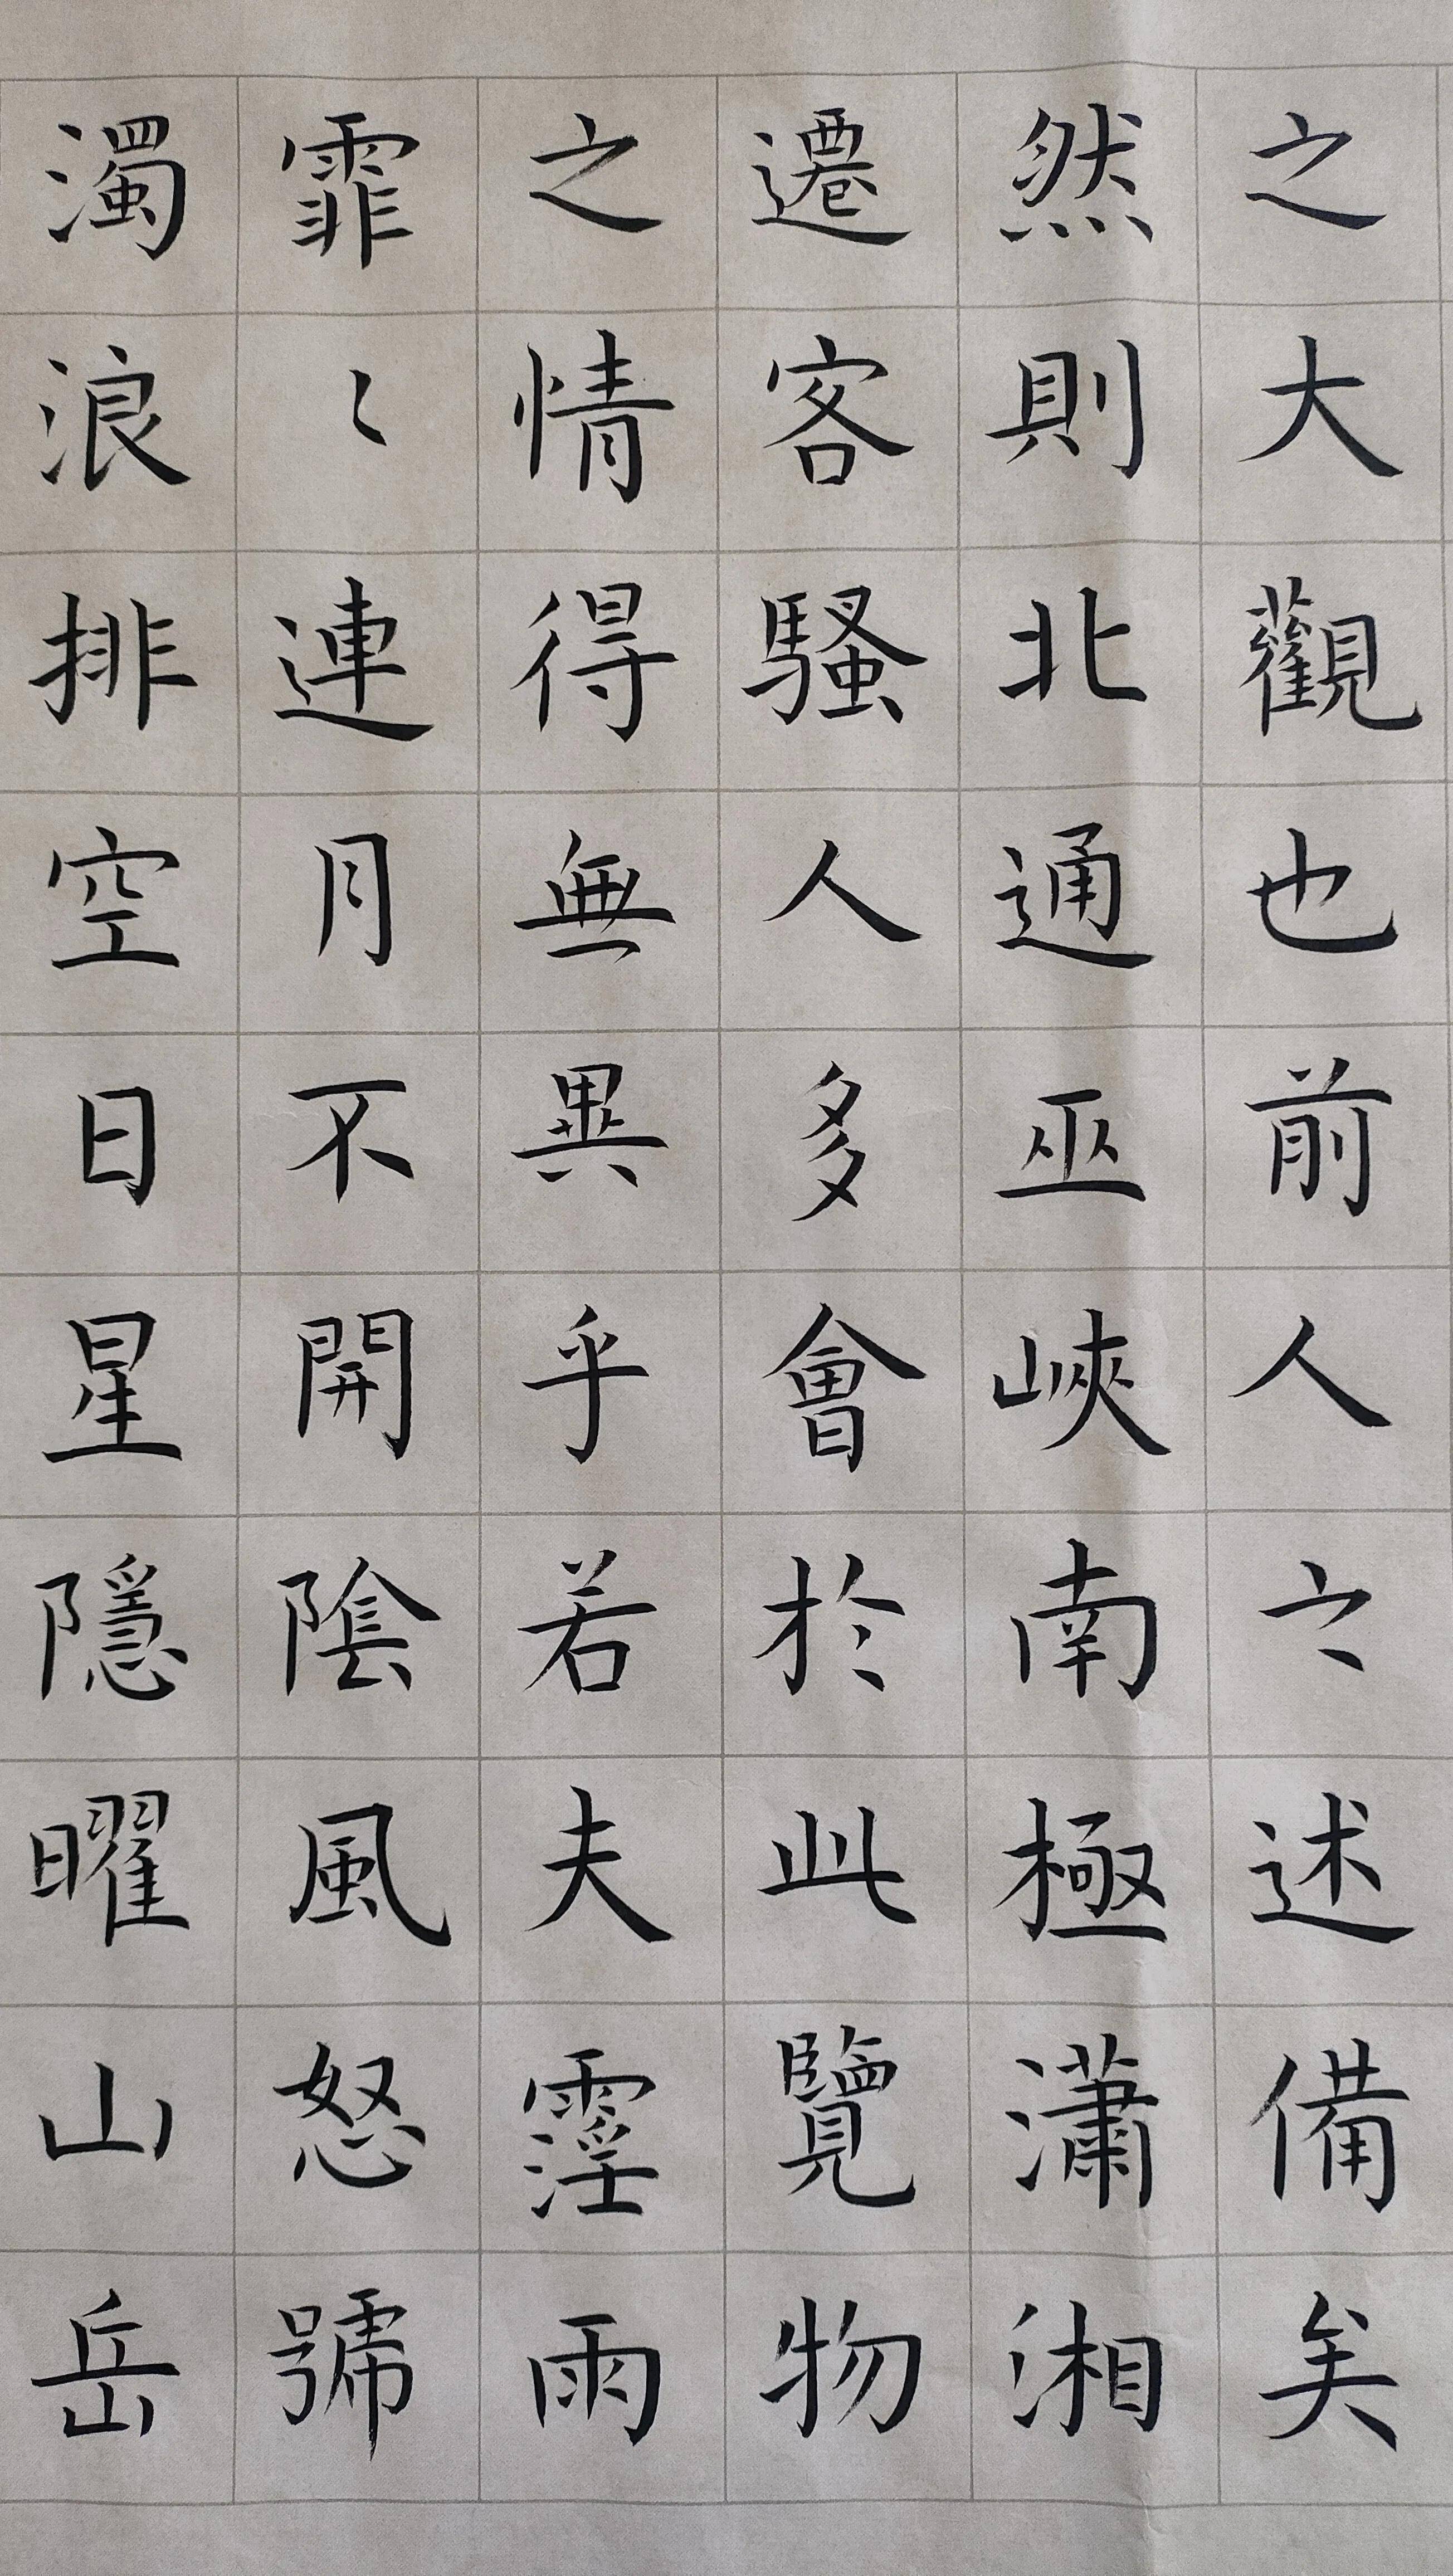 之大觀也前人之述備矣
然則北通巫峽南極瀟湘
遷客騷人多會於此覽物
之情得無異乎若夫霪雨
霏〻連月不開陰風怒號
濁浪排空日星隱曜山岳